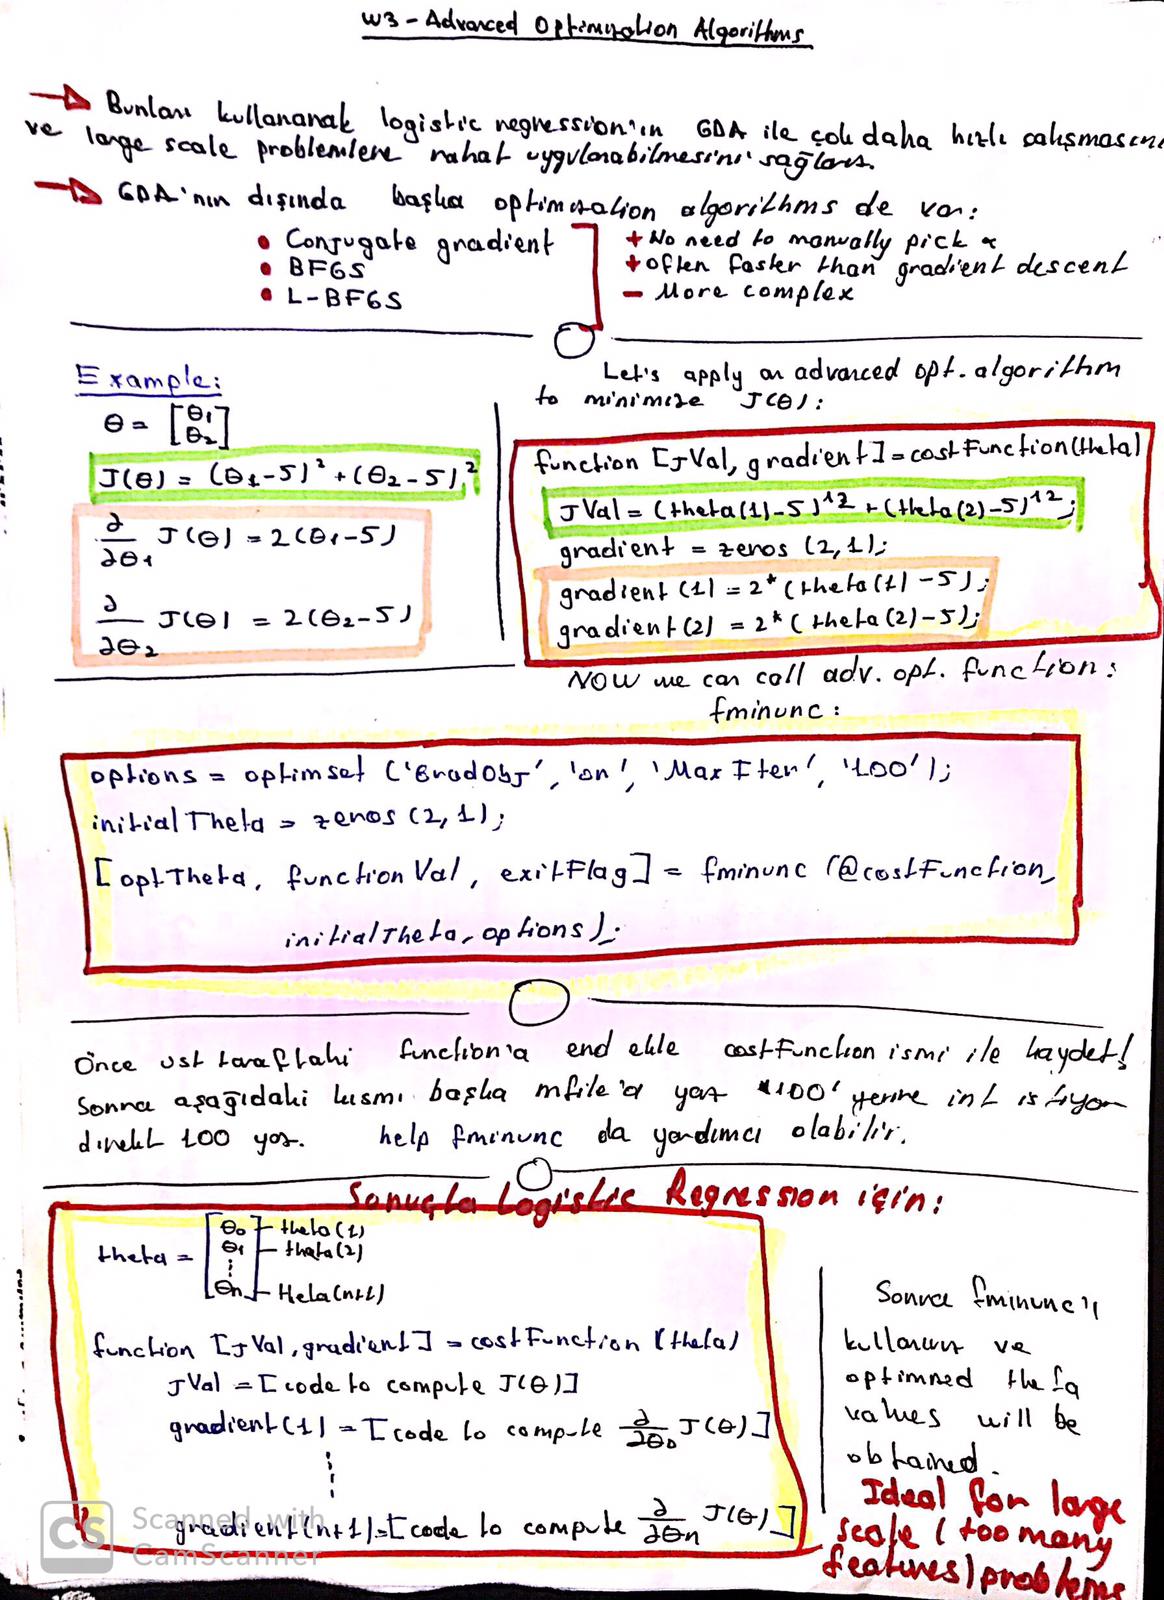 W3 - Advanced Optimization Algorithms
Bunları kullanarak logistic regression'ın GDA ile çok daha hızlı çalışmasını
ve large scale problemlere rahat uygulanabilmesini sağlarız.
GDA'nın dışında başka optimization algorithms de var:
• Conjugate gradient
• BFGS
• L-BFGS
+ No need to manually pick α
+ Often faster than gradient descent
- More complex
Example:
θ = [θ1
θ2]
J(θ) = (θ1-5)² + (θ2-5)²
∂/∂θ1 J(θ) = 2(θ1-5)
∂/∂θ2 J(θ) = 2(θ2-5)
Let's apply an advanced opt. algorithm
to minimize J(θ):
function [JVal, gradient] = costFunction(theta)
JVal = (theta(1)-5)^2 + (theta(2)-5)^2;
gradient = zeros (2,1);
gradient (1) = 2*(theta(1)-5);
gradient (2) = 2*(theta(2)-5);
NOW we can call adv. opt. function:
fminunc:
options = optimset ('GradObj', 'on', 'MaxIter', '100');
initialTheta = zeros (2,1);
[optTheta, functionVal, exitFlag] = fminunc (@costFunction,
initialTheta, options);
Önce üst taraftaki function'a end ekle costFunction ismi ile kaydet!
Sonra aşağıdaki kısmı başka mfile'a yaz '100' yerine int istiyor
direkt 100 yaz. help fminunc da yardımcı olabilir.
Sonuçta Logistic Regression için:
theta = [θ0 - theta(1)
θ1 - theta(2)
⋮
θn] - theta(n+1)
function [JVal, gradient] = costFunction (theta)
JVal = [code to compute J(θ)]
gradient(1) = [code to compute ∂/∂θ0 J(θ)]
⋮
gradient(n+1) = [code to compute ∂/∂θn J(θ)]
Sonra fminunc'ı
kullanırız ve
optimized theta
values will be
obtained.
Ideal for large
scale (too many
features) problems
CS Scanned with
CamScanner